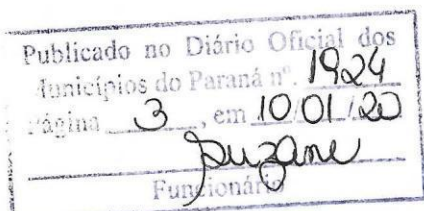 Publicado no Diário Oficial dos
Municípios do Paraná nº. 1924
Página 3, em 10/01/20
Suzane
Funcionário